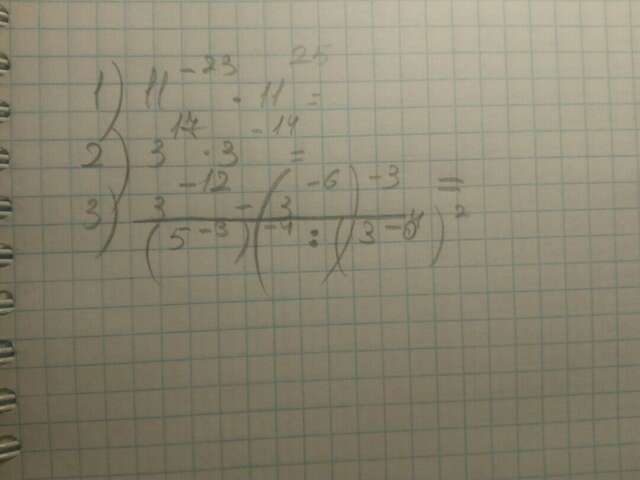 1) 11^-23 · 11^25 =
2) 3^17 · 3^-14 =
3) 3^-12 - (3^-6)^-3 =
(5^-3)^-4 : (3^-6)^2